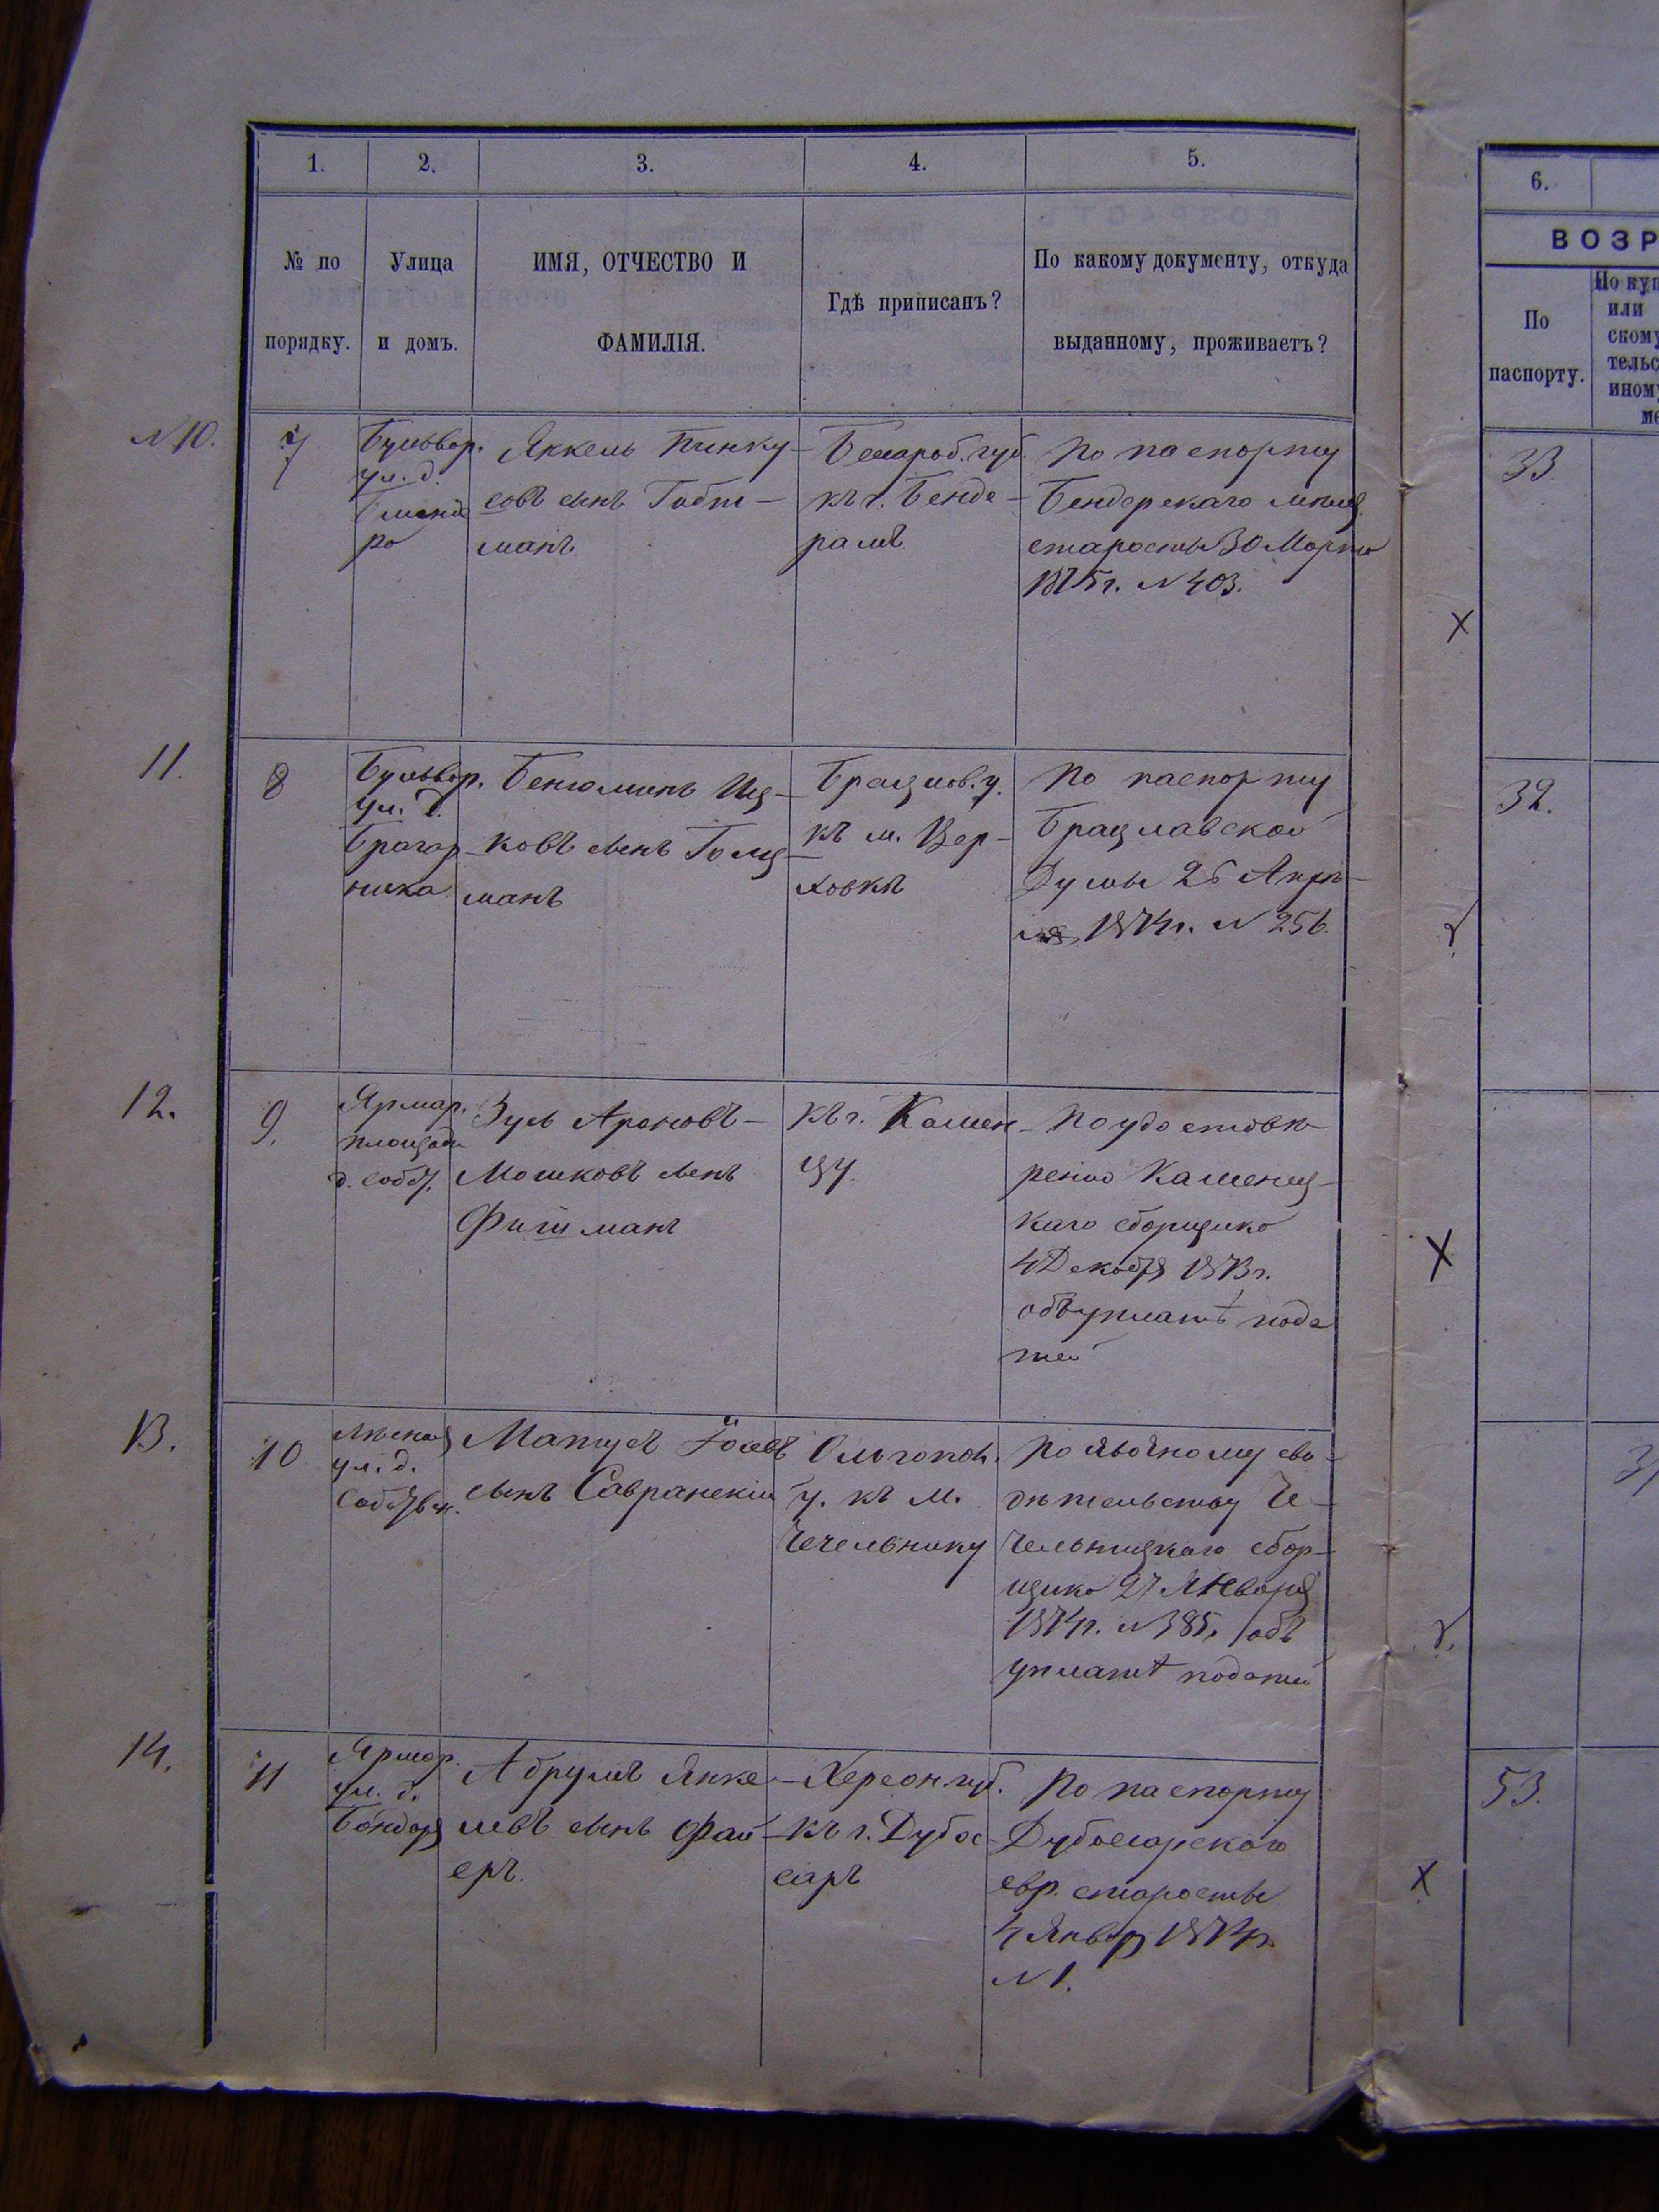 1. 2. 3. 4. 5.
№ по порядку.
Улица и домъ.
ИМЯ, ОТЧЕСТВО И ФАМИЛІЯ.
Гдѣ приписанъ?
По какому документу, откуда выданному, проживаетъ?
N 10.
7
Бульвар.
ул. д.
ро
Янкель Пинку-
совъ сынъ Гобт-
манъ.
Бессараб. губ.
къ г. Бенде-
рамъ.
По паспорту
Бендерскаго мѣщ.
старосты 30 Марта
1875 г. N 403.
11.
8
Бульвар.
ул. д.
Брагар-
ника
Бенюминъ Иц-
ковъ сынъ Голц-
манъ
Брацлов. у.
къ м. Вер-
ховкѣ
По паспорту
Брацлавской
Думы 26 Апрѣ-
ля 1874 г. N 256.
12.
9.
Ярмар.
площадь
д. собст.
Зусь Ароновъ-
Мошковъ сынъ
Фишманъ
къ г. Камен-
цу.
По удостовѣ-
ренію Каменец-
каго сборщика
4 Декабря 1873 г.
объ уплатѣ пода
тей
13.
10
Лѣсная
ул. д.
Собствен.
Матусъ Іосевъ
сынъ Савранскій
Ольгопол.
у. къ м.
Чечельнику
По явочному сви-
дѣтельству Че-
чельницкаго сбор-
щика 27 Января
1874 г. N 385, объ
уплатѣ податей
14.
11
Ярмар.
ул. д.
Бондаря
Абрумъ Янке-
левъ сынъ Фай-
еръ.
Херсон. губ.
къ г. Дубос-
саръ
По паспорту
Дубоссарскаго
евр. старосты
4 Январ 1874 г.
N 1.
6.
ВОЗР
По паспорту.
По куп
или
скому
тельс
иному
ме
33.
32.
53.